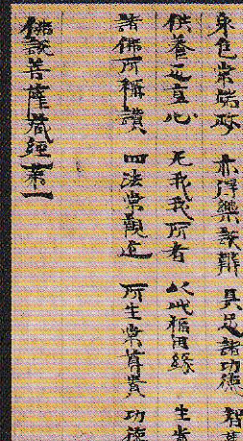 身色常端政 亦得樂說辯 具足諸功德
供養正直心 无我我所者 以此福因緣 生
諸佛所稱讚 四法常親近 所生常尊貴 功德
佛說菩薩藏經苐一